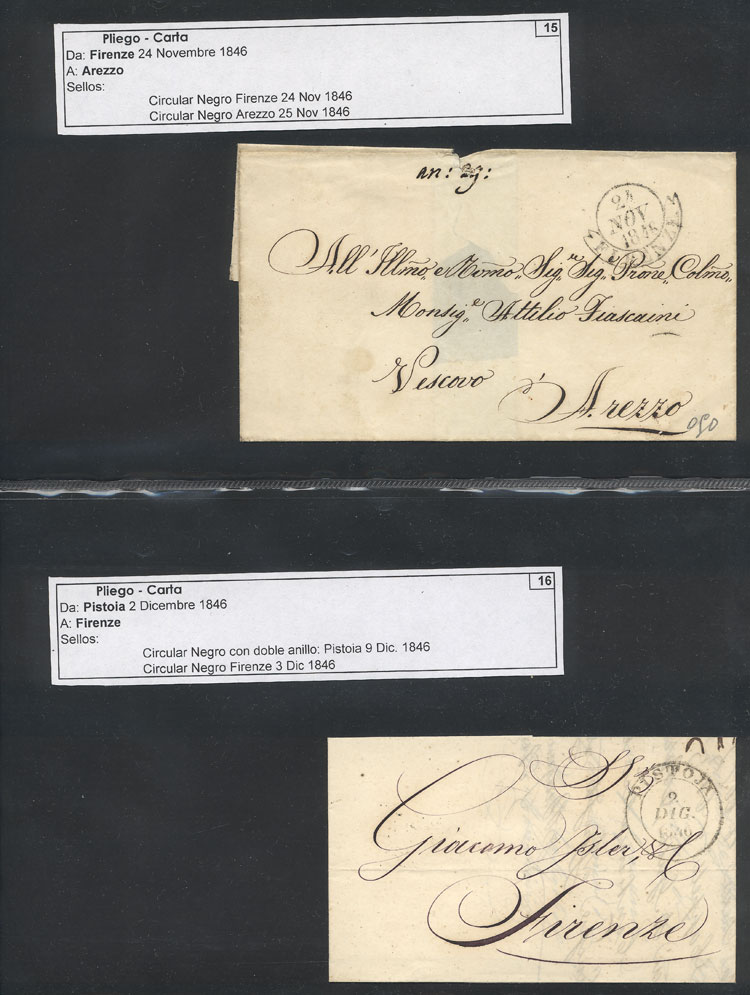 15
Pliego - Carta
Da: Firenze 24 Novembre 1846
A: Arezzo
Sellos:
Circular Negro Firenze 24 Nov 1846
Circular Negro Arezzo 25 Nov 1846
24
NOV
1846
FIRENZE
All' Illmo, e Rmo, Sig,,re Sig,,re Prone,, Colmo,,
Monsig,,e Attilio Fiascaini
Vescovo
d'Arezzo
16
Pliego - Carta
Da: Pistoia 2 Dicembre 1846
A: Firenze
Sellos:
Circular Negro con doble anillo: Pistoia 9 Dic. 1846
Circular Negro Firenze 3 Dic 1846
PISTOJA
DIC.
1846
Giacomo
& C
Firenze